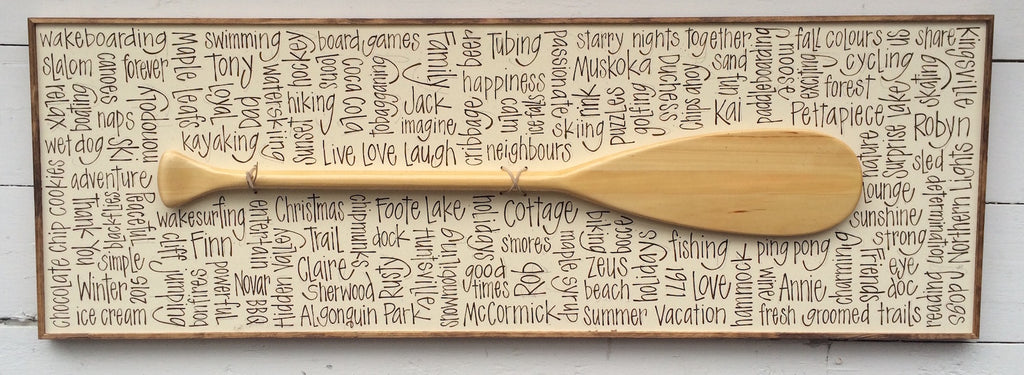 wakeboarding
slalom
canoes
forever
relax
boating
naps
monopoly
wet dog
ski
Maple Leafs
swimming
Tony
Loyal
pad
waterskiing
hockey
Jonas
hiking
sunset
kayaking
board games
Coca Cola
tobagganing
Jack
imagine
Live Love Laugh
Family
beer
cribbage
Tubing
happiness
calm
ice falls
neighbours
passionate
skiing
starry nights together
Muskoka
rink
puzzles
golfing
Duchess
chips ahoy
sand
fun
Kai
paddleboarding
moose
fall colours
exciting
cycling
forest
Pettapiece
sun
share
skating
Kingsville
Lake
Surprise
Robyn
sled
Wayne
lounge
sunshine
strong
determination
Northern Lights
chocolate chip cookies
adventure
Thank You
blackflies
simple
Peaceful
Winter
2015
ice cream
wakesurfing
cliff jumping
Finn
bonfires
twirl-a-tul
Novar
BBQ
entertaining
Hidden Valley
Christmas
chipmunks
Trail
dock
Claire
Sherwood
Rusty
Algonquin Park
Foote Lake
Huntsville
snowmobiling
Hills
Apples
good times
McCormick
Cottage
s'mores
Rob
maple syrup
biking
bocce
zeus
beach
summer vacation
holidays
fishing
1971
Love
hammock
ping pong
wine
Annie
charming
fresh groomed trails
Spitfire
eye doc
reading
hot dogs